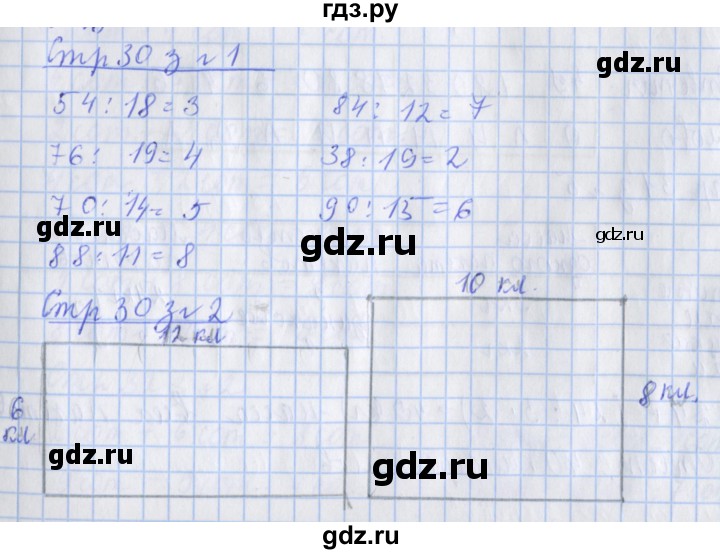 гдз.ру
Стр 30 з №1
54 : 18 = 3    84 : 12 = 7
76 : 19 = 4    38 : 19 = 2
70 : 14 = 5    90 : 15 = 6
88 : 11 = 8
Стр 30 з №2
12 кл
10 кл.
6 кл
8 кл.
gdz.ru
gdz.ru
gdz.ru
gdz.ru
gdz.ru
gdz.ru
гдз.ру